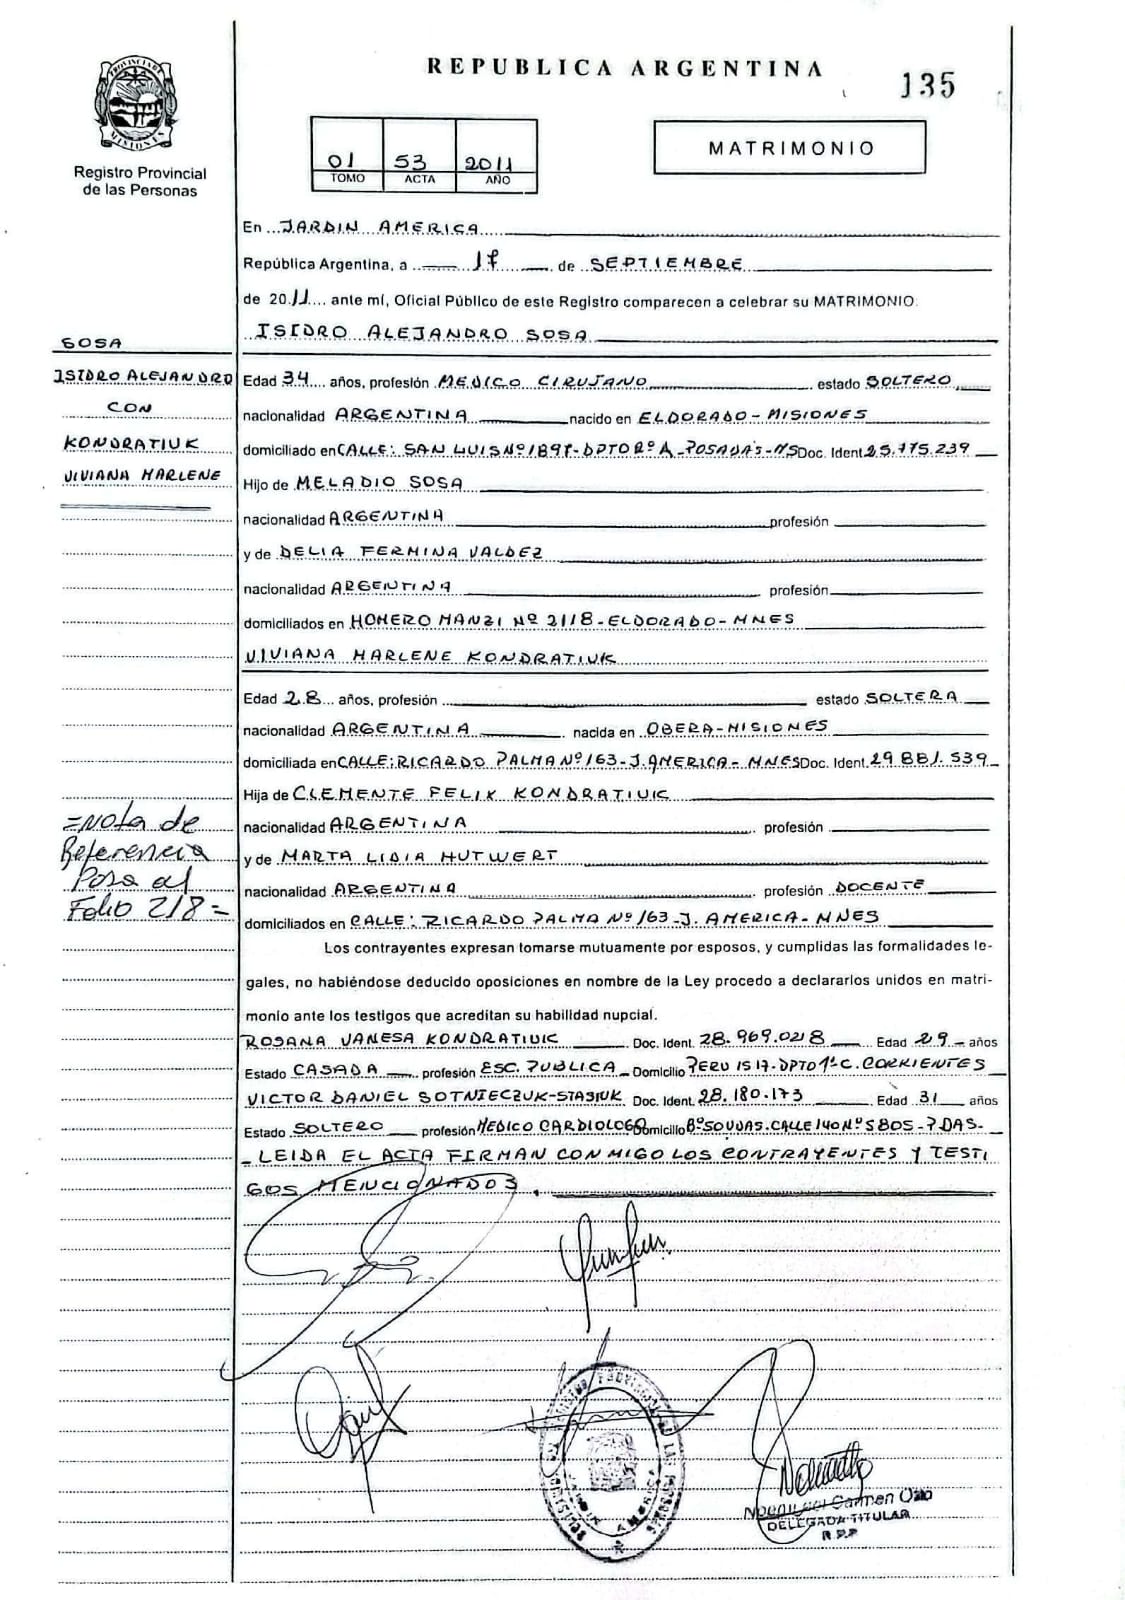 REPUBLICA ARGENTINA
135
PROVINCIA DE
MISIONES
Registro Provincial
de las Personas
01 53 2011
TOMO ACTA AÑO
MATRIMONIO
En JARDIN AMERICA
República Argentina, a 17 de SEPTIEMBRE
de 2011 ante mí, Oficial Público de este Registro comparecen a celebrar su MATRIMONIO:
ISIDRO ALEJANDRO SOSA
SOSA
ISIDRO ALEJANDRO
CON
KONDRATIUK
VIVIANA MARLENE
Edad 34 años, profesión MEDICO CIRUJANO estado SOLTERO
nacionalidad ARGENTINA nacido en ELDORADO-MISIONES
domiciliado en CALLE: SAN LUIS Nº 1897-DPTO Rº A-POSADAS-MS Doc. Ident. 25.775.239
Hijo de MELADIO SOSA
nacionalidad ARGENTINA profesión
y de DELIA FERMINA VALDEZ
nacionalidad ARGENTINA profesión
domiciliados en HOMERO MANZI Nº 2118-ELDORADO-MNES
VIVIANA MARLENE KONDRATIUK
Edad 28 años, profesión estado SOLTERA
nacionalidad ARGENTINA nacida en OBERA-MISIONES
domiciliada en CALLE: RICARDO PALMA Nº 163-J. AMERICA-MNES Doc. Ident. 29.881.539
Hija de CLEMENTE FELIX KONDRATIUK
nacionalidad ARGENTINA profesión
y de MARTA LIDIA HUTWERT
nacionalidad ARGENTINA profesión DOCENTE
domiciliados en CALLE: RICARDO PALMA Nº 163-J. AMERICA-MNES
=Nota de
Referencia
Pasa al
Folio 218=
Los contrayentes expresan tomarse mutuamente por esposos, y cumplidas las formalidades le-
gales, no habiéndose deducido oposiciones en nombre de la Ley procedo a declararlos unidos en matri-
monio ante los testigos que acreditan su habilidad nupcial.
ROSANA VANESA KONDRATIUK Doc. Ident. 28.969.028 Edad 29 años
Estado CASADA profesión ESC. PUBLICA Domicilio PERU 1517-DPTO 1º C. CORRIENTES
VICTOR DANIEL SOTNIECZUK-STASIUK Doc. Ident. 28.180.173 Edad 31 años
Estado SOLTERO profesión MEDICO CARDIOLOGO Domicilio Bº SOVDAS. CALLE 140 Nº 5805-PDAS-
LEIDA EL ACTA FIRMAN CONMIGO LOS CONTRAYENTES Y TESTI
GOS MENCIONADOS.
JARDIN AMERICA
DELEGADA TITULAR
R.P.P